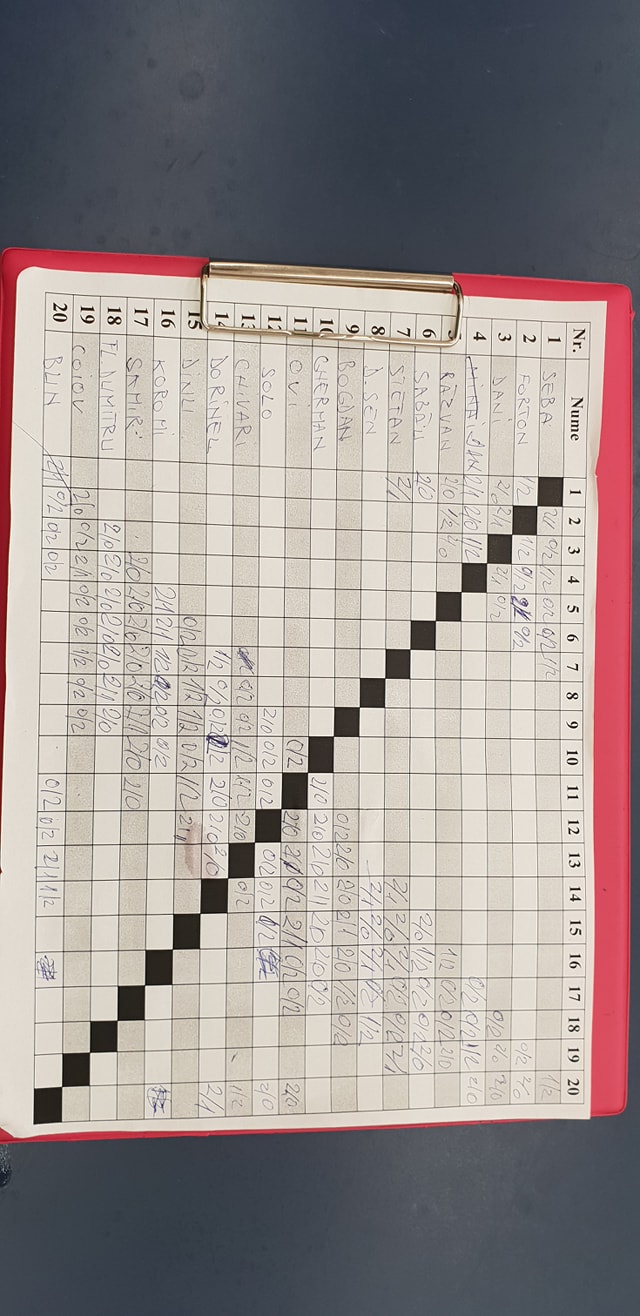 Nr. Nume 1 2 3 4 5 6 7 8 9 10 11 12 13 14 15 16 17 18 19 20
1 SEBA 2/1 0/2 1/2 0/2 0/2 1/2 1/2
2 FORTON 1/2 1/2 0/2 0/2 0/2 2/0
3 DANI 2/0 2/1 2/1 0/2 0/2 2/0 2/0
4 DAN 2/1 2/0 1/2 0/2 0/2 1/2 2/0
5 RĂZVAN 2/0 1/2 2/0 1/2 0/2 0/2 2/0
6 SABĂU 2/0 2/0 1/2 0/2 0/2 2/0
7 STEFAN 2/1 2/1 2/0 2/1 0/2 0/2 2/1
8 D. SEN 2/1 2/0 2/1 0/2 1/2
9 BOGDAN 0/2 2/0 2/0 2/1 2/0 1/2 0/2
10 GHERMAN 2/0 2/0 2/0 2/1 2/0 2/0
11 OVI 0/2 2/0 0/2 2/1 0/2 0/2 2/0
12 SOLO 2/0 0/2 0/2 0/2 0/2 2/0
13 CHIVARI 0/2 0/2 1/2 1/2 2/0 0/2 1/2
14 DORINEL 1/2 0/2 0/2 2/0 2/0 2/0 2/1
15 DINU 0/2 0/2 1/2 1/2 0/2 1/2 2/1
16 KOROMI 2/1 2/1 1/2 0/2 0/2 0/2
17 SAMIR 2/0 2/0 2/0 2/0 2/0 2/1 2/0 2/0
18 FL DUMITRU 2/0 2/0 2/0 2/0 2/0 2/1 2/0
19 COJOV 2/0 0/2 2/1 0/2 0/2 1/2 0/2 0/2
20 BLIN 2/1 0/2 0/2 0/2 0/2 0/2 2/1 1/2